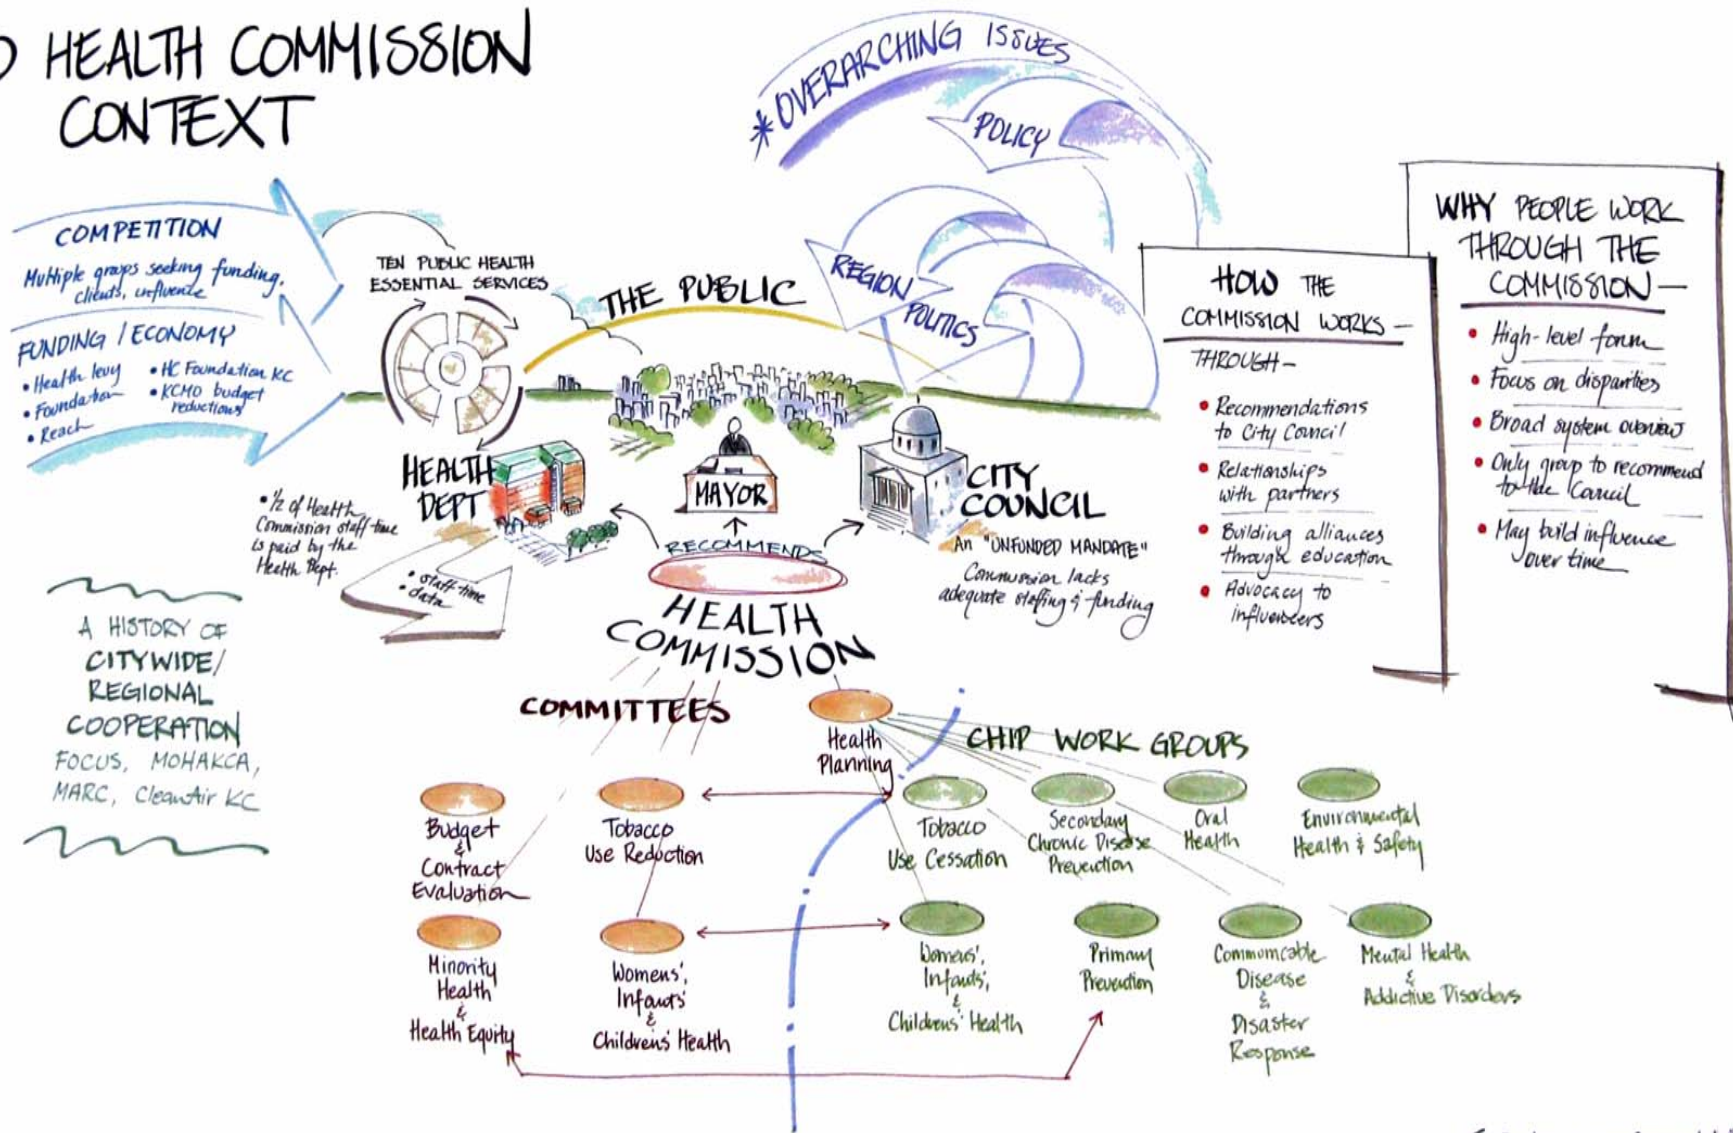 HEALTH COMMISSION
CONTEXT
* OVERARCHING ISSUES
POLICY
REGION
POLITICS
COMPETITION
Multiple groups seeking funding,
clients, influence
FUNDING / ECONOMY
• Health levy
• Foundation
• Reach
• HC Foundation KC
• KCMO budget
reductions
TEN PUBLIC HEALTH
ESSENTIAL SERVICES
THE PUBLIC
HEALTH
DEPT
MAYOR
CITY
COUNCIL
An "UNFUNDED MANDATE"
Commission lacks
adequate staffing & funding
• 1/2 of Health
Commission staff time
is paid by the
Health Dept.
• staff-time
• data
RECOMMENDS
HEALTH
COMMISSION
HOW THE
COMMISSION WORKS —
THROUGH —
• Recommendations
to City Council
• Relationships
with partners
• Building alliances
through education
• Advocacy to
influencers
WHY PEOPLE WORK
THROUGH THE
COMMISSION —
• High-level forum
• Focus on disparities
• Broad system overview
• Only group to recommend
to the Council
• May build influence
over time
A HISTORY OF
CITYWIDE/
REGIONAL
COOPERATION
FOCUS, MOHAKCA,
MARC, CleanAir KC
COMMITTEES
Health
Planning
Budget
&
Contract
Evaluation
Tobacco
Use Reduction
Minority
Health
&
Health Equity
Womens',
Infants'
&
Childrens' Health
CHIP WORK GROUPS
Tobacco
Use Cessation
Secondary
Chronic Disease
Prevention
Oral
Health
Environmental
Health & Safety
Womens',
Infants',
&
Childrens' Health
Primary
Prevention
Communcable
Disease
&
Disaster
Response
Mental Health
&
Addictive Disorders